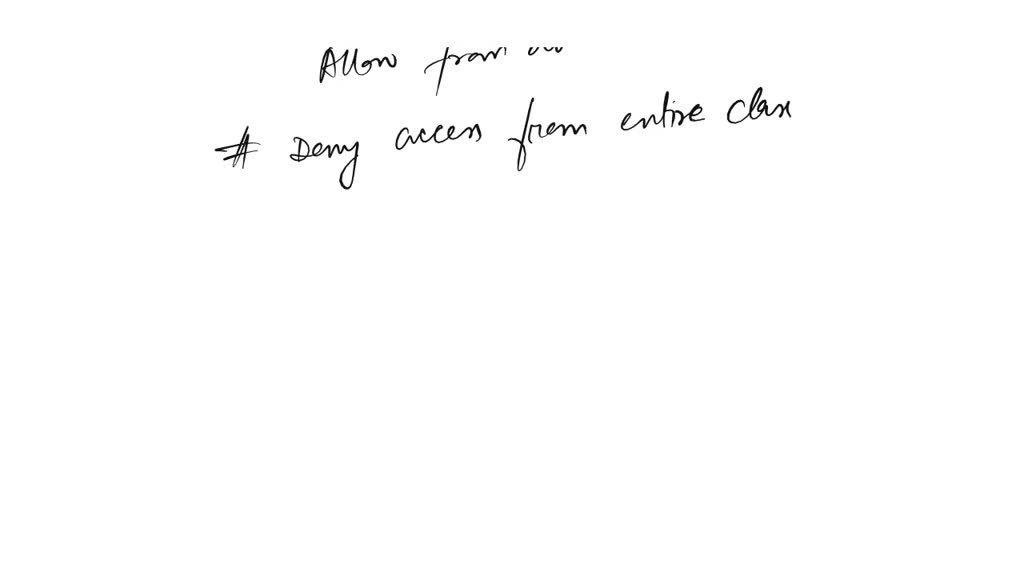 Allow from
# Deny access from entire class